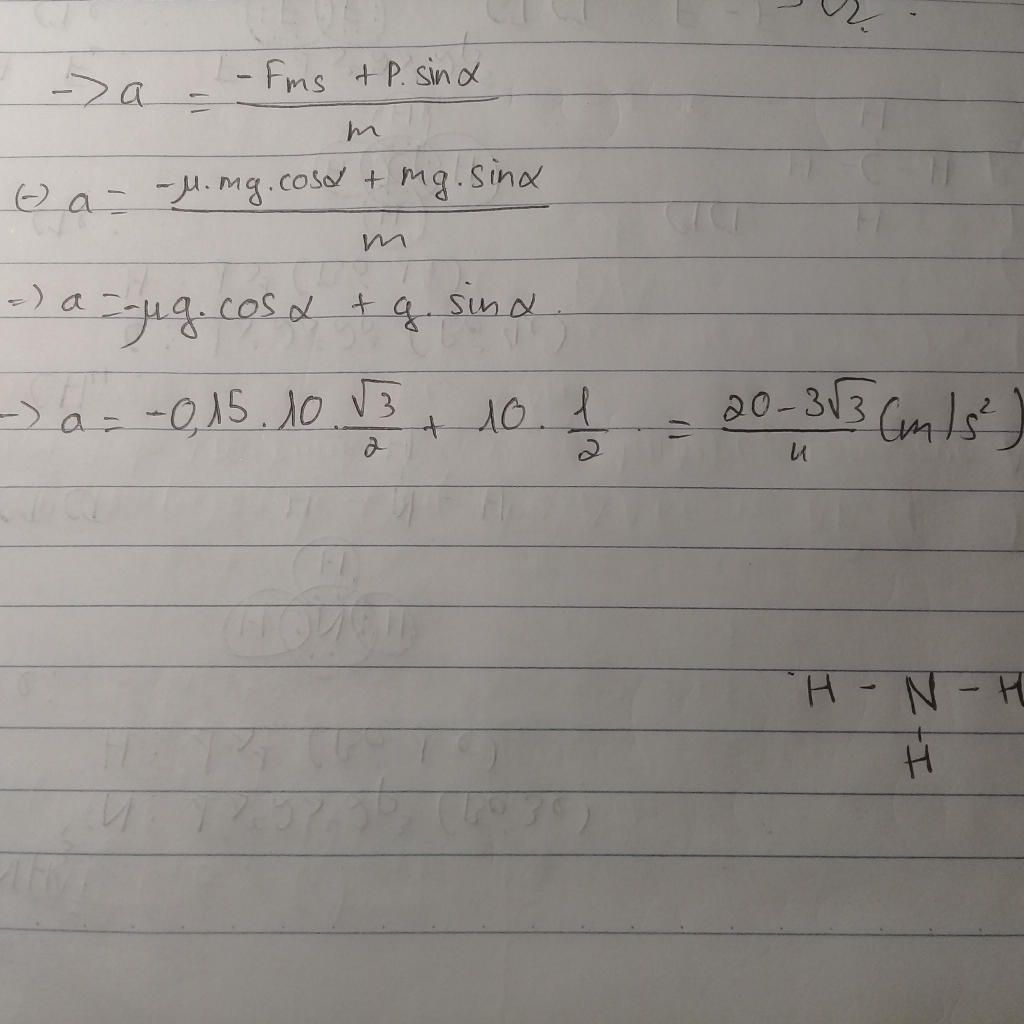 -> a = (-Fms + P. sinα) / m
(=) a = (-μ.mg.cosα + mg.sinα) / m
=) a = -μg.cosα + g.sinα.
-> a = -0,15.10.√3/2 + 10.1/2 = (20-3√3)/4 (m/s²)
H - N - H
H